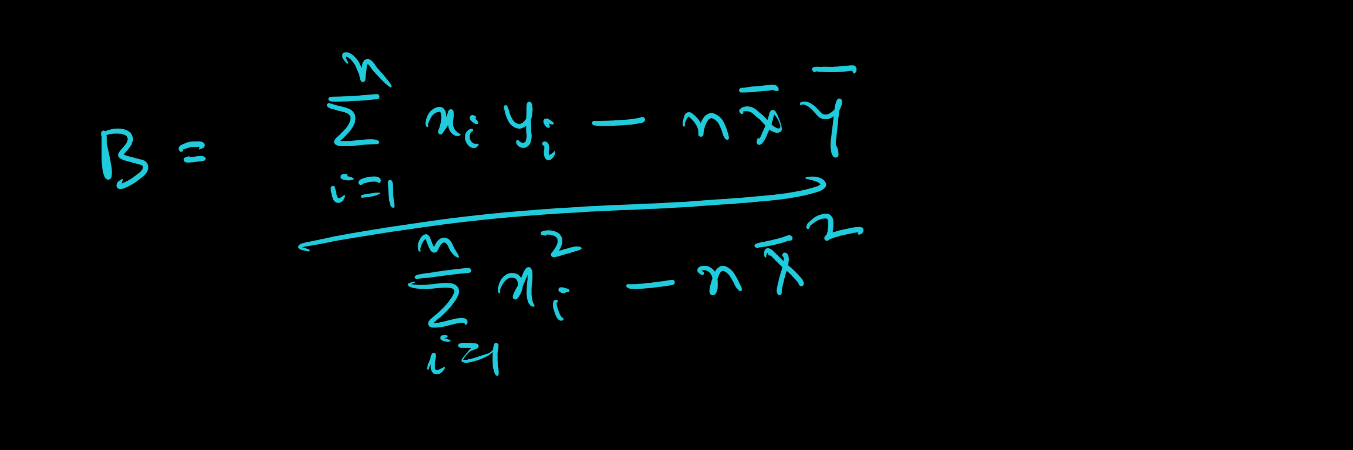 B = \frac{\sum_{i=1}^{n} x_i y_i - n \overline{x} \overline{y}}{\sum_{i=1}^{n} x_i^2 - n \overline{x}^2}